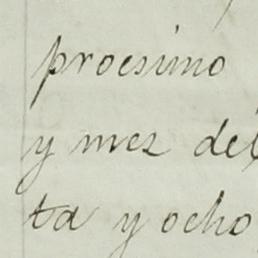 proesimo
y mez del
ta y ocho